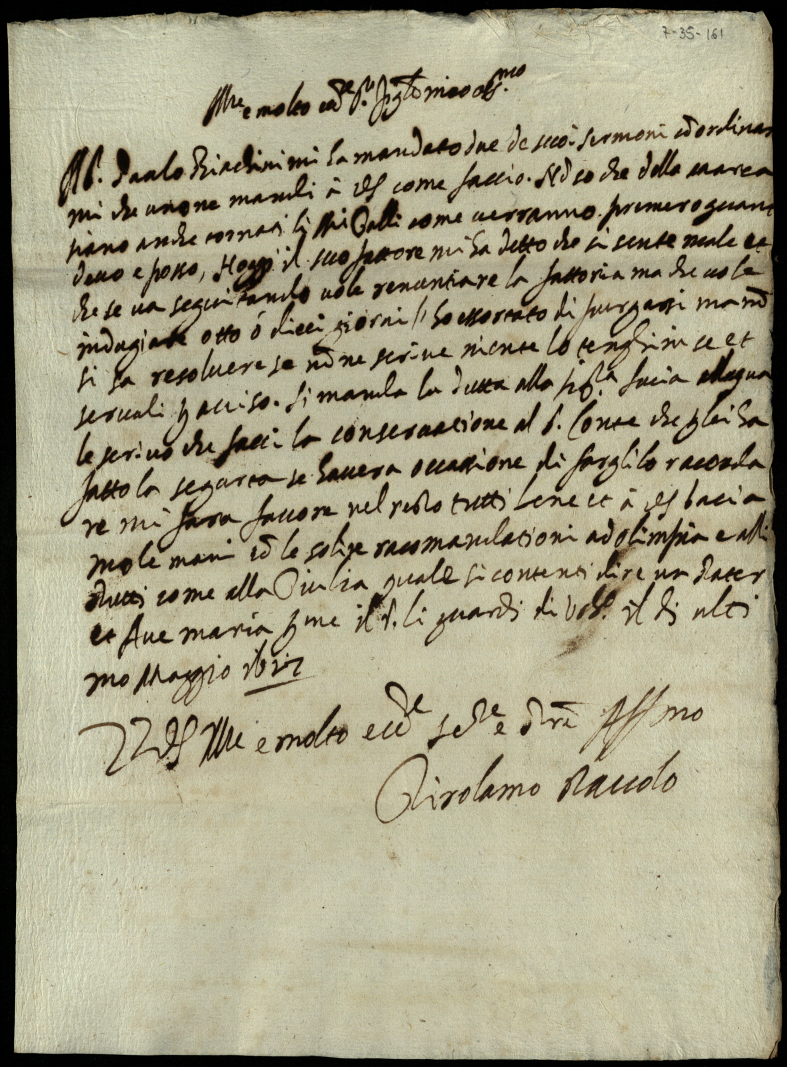 7-35-161
Ill.re e molto ecc.te S.r figlo mio oss.mo
Il S. Paulo mi ha mandato due de suoi sermoni et ordina
mi che uno ne mandi à VS come faccio. che della marca
siano anche tornati li Galli come verranno. primero quant
devo e posso, Hoggi il suo fattore mi ha detto che si sente male et
che se va seguitando vole renuntiare la fattoria ma che vole
indugiare otto ó dieci giorni l'ho essortato di purgarsi ma nō
si sa resolvere se nō ne scrive niente lo tenghi in se et
servali p aviso. Si manda la alla sig.ra
le scrivo che facci la conservatione al S. Conte che glei ha
fatto la segurta se havera occassione di farglilo racorda
re mi sara favore nel resto tutti bene et à VS bacia
mo le mani cō le solite racomandationi ad olimpia e alli
tutti come alla Giulia quale si contenti dire un Pater
et Ave maria p me il S. li guardi di il di ulti
mo Maggio
D VS Ill.re e molto ecc.te Aff.mo
Girolamo